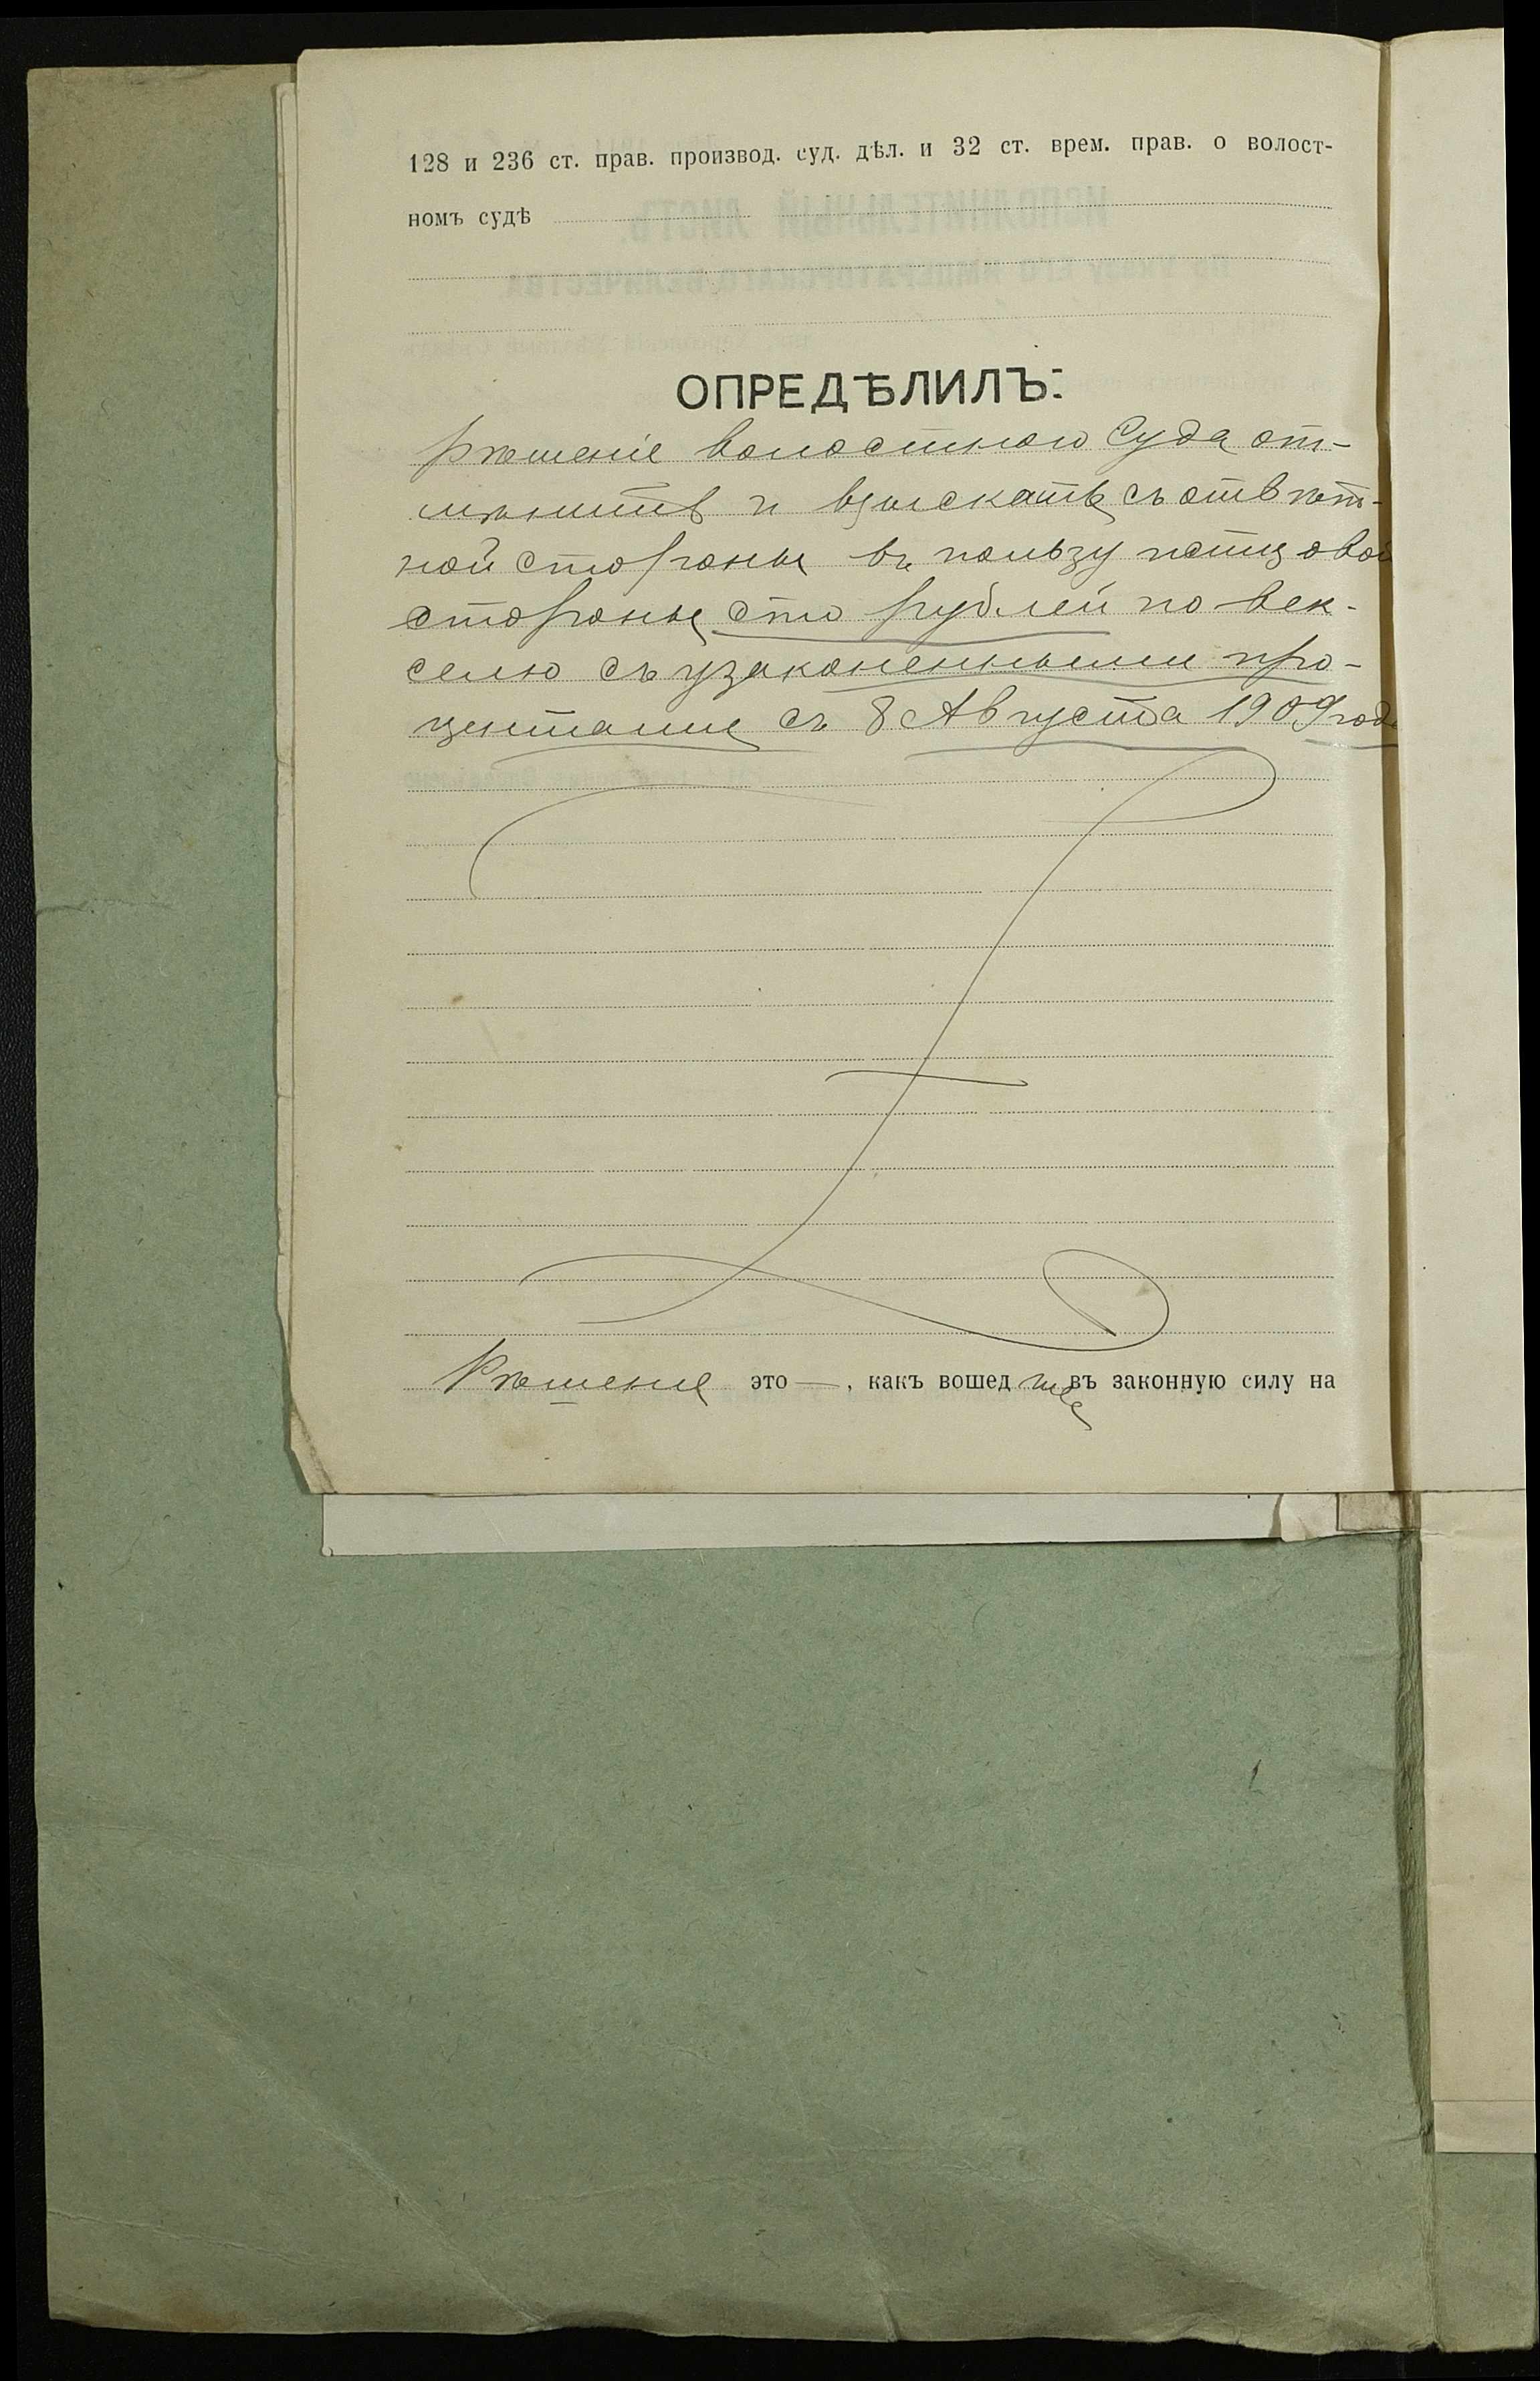 128 и 236 ст. прав. производ. суд. дѣл. и 32 ст. врем. прав. о волост-
номъ судѣ
ОПРЕДѢЛИЛЪ:
рѣшеніе волостного Суда от-
мѣнить и взыскать съ отвѣт-
ной стороны въ пользу истцовой
стороны сто рублей по век-
селю съ узаконенными про-
центами съ 8 Августа 1909 года
Рѣшеніе это —, какъ вошедшее въ законную силу на